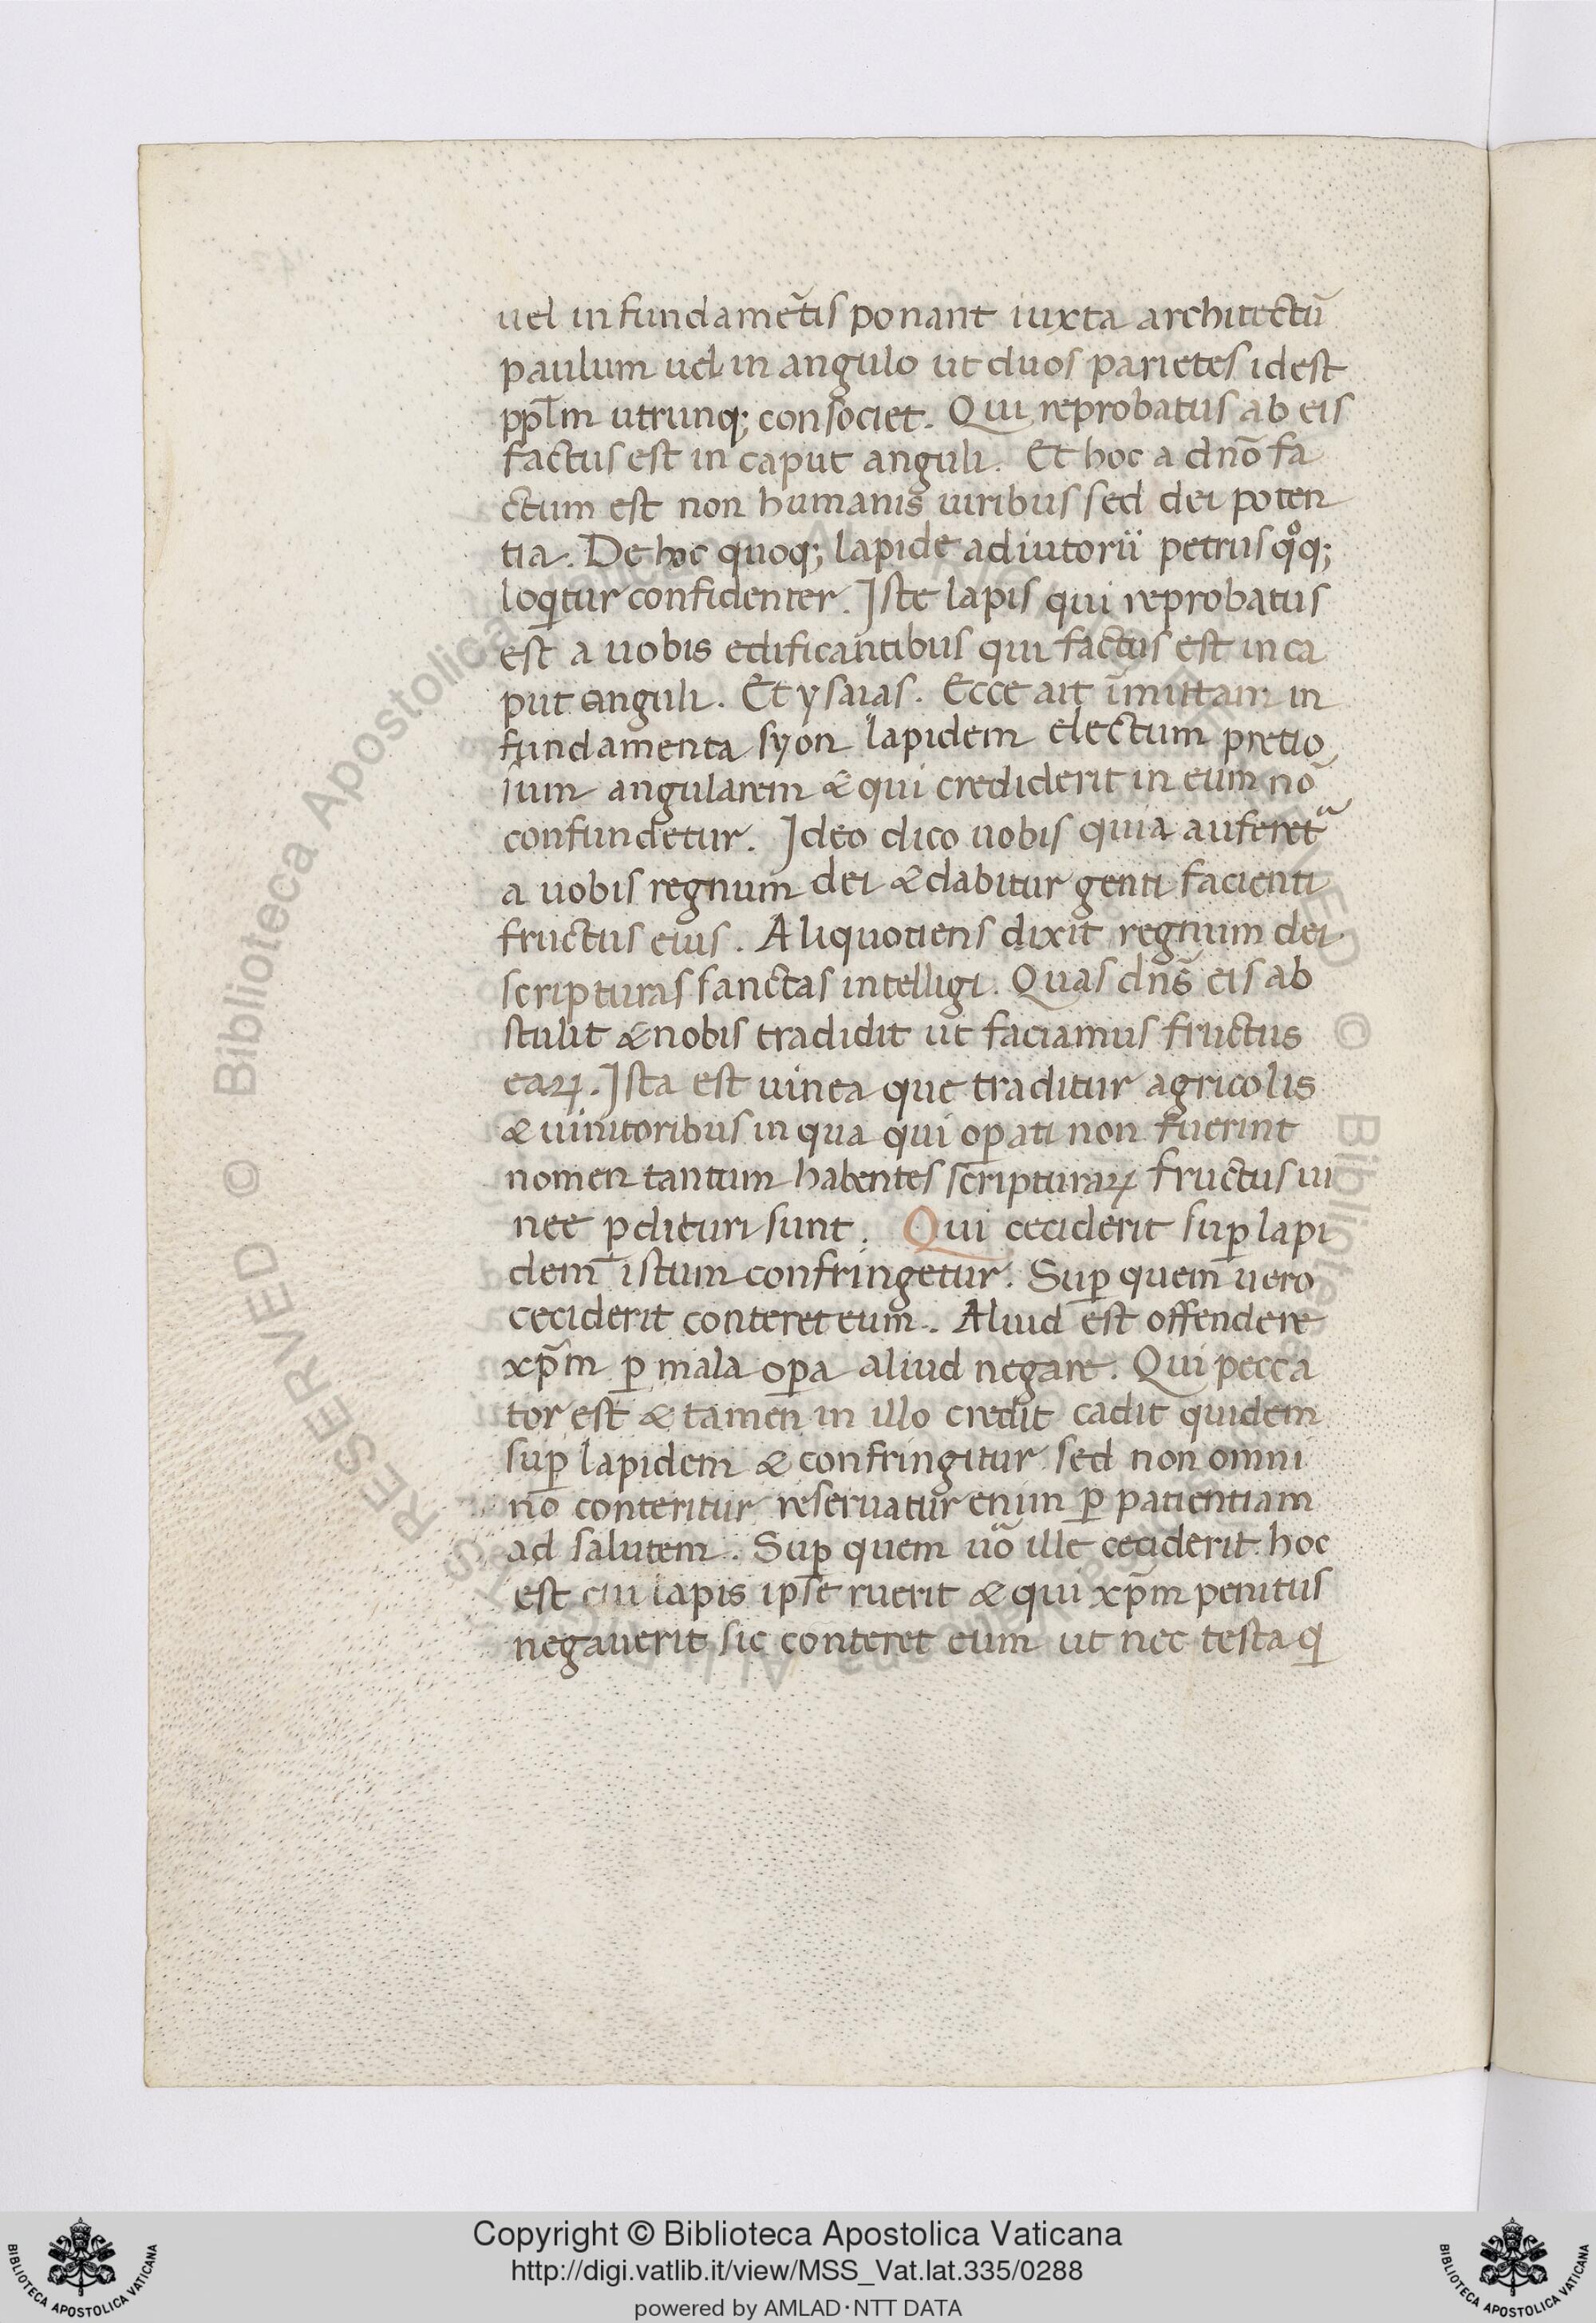 uel in fundamẽtis ponant iuxta architectũ
paulum uel in angulo ut duos parietes id est
ppl̅m utrunq; consociet. Qui reprobatus ab eis
factus est in caput anguli. Et hoc a dño fa
ctum est non humanis uiribus sed dei poten
tia. De hoc quoq; lapide adiutorii petrus qͦq;
loqͥtur confidenter. Iste lapis qui reprobatus
est a uobis edificantibus qui factus est in ca
put anguli. Et ysaias. Ecce ait ĩmittam in
fundamenta syon lapidem electum pretio
sum angularem & qui crediderit in eum nõ
confundetur. Ideo dico uobis quia auferet᷑
a uobis regnum dei & dabitur genti facienti
fructus eius. Aliquotiens dixit regnum dei
scripturas sanctas intelligi. Quas dñs eis ab
stulit & nobis tradidit ut faciamus fructus
eaꝝ. Ista est uinea que traditur agricolis
& uinitoribus in qua qui oꝑati non fuerint
nomen tantum habentes scripturaꝝ fructus ui
nee ꝑdituri sunt. Qui ceciderit suꝑ lapi
dem istum confringetur. Suꝑ quem uero
ceciderit conteret eum. Aliud est offendere
xp̃m ꝑ mala oꝑa aliud negare. Qui pecca
tor est & tamen in illo credit cadit quidem
suꝑ lapidem & confringitur sed non omni
no conteritur reseruatur enim ꝑ patientiam
ad salutem. Suꝑ quem uõ ille ceciderit hoc
est cui lapis ipse ruerit & qui xp̃m penitus
negauerit sic conteret eum ut nec testa qͥ
Copyright © Biblioteca Apostolica Vaticana
http://digi.vatlib.it/view/MSS_Vat.lat.335/0288
powered by AMLAD·NTT DATA
BIBLIOTECA APOSTOLICA VATICANA
BIBLIOTECA APOSTOLICA VATICANA